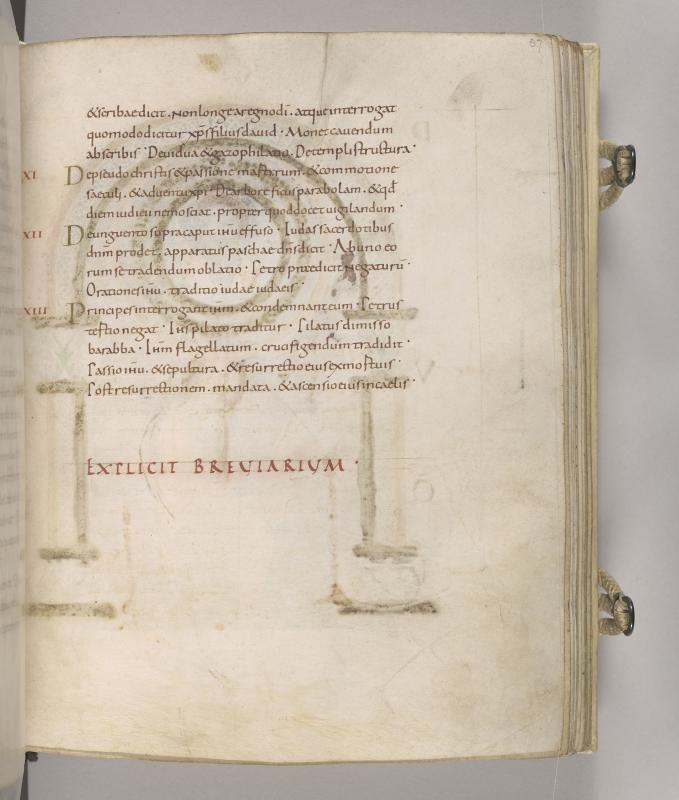 57
&scribaedicit. Nonlongearegnodī. atqueinterrogat
quomododicitur xp̄sfiliusdauid · Monetcauendum
abscribis · Deuidua &gazophilatio. Detemplistructura ·
XI Depseudochristis &passionemartirum. &commotione
saeculi. &aduentuxpī · Dicarborē ficusparabolam. &qđ
diemiudicii nemosciat. propterquoddocetuigilandum ·
XII Deunguento supracaput ihū effuso · Iudassacerdotibus
dnm̄ prodet. apparatus paschae dn̄s dicit · Abuno eo
rum setradendum oblatio · Petro praedicit negaturū ·
Orationesihū. traditio iudae iudaeis ·
XIII Principesinterrogant ihm̄. &condemnant eum · Petrus
tertio negat · Ihs pilato traditur · Pilatus dimisso
barabba · Ihm̄ flagellatum. crucifigendum tradidit ·
Passio ihū. &sepultura. &resurrectio eius exmortuis ·
Postresurrectionem. mandata. &ascensio eius incaelis ·
EXPLICIT BREUIARIUM ·